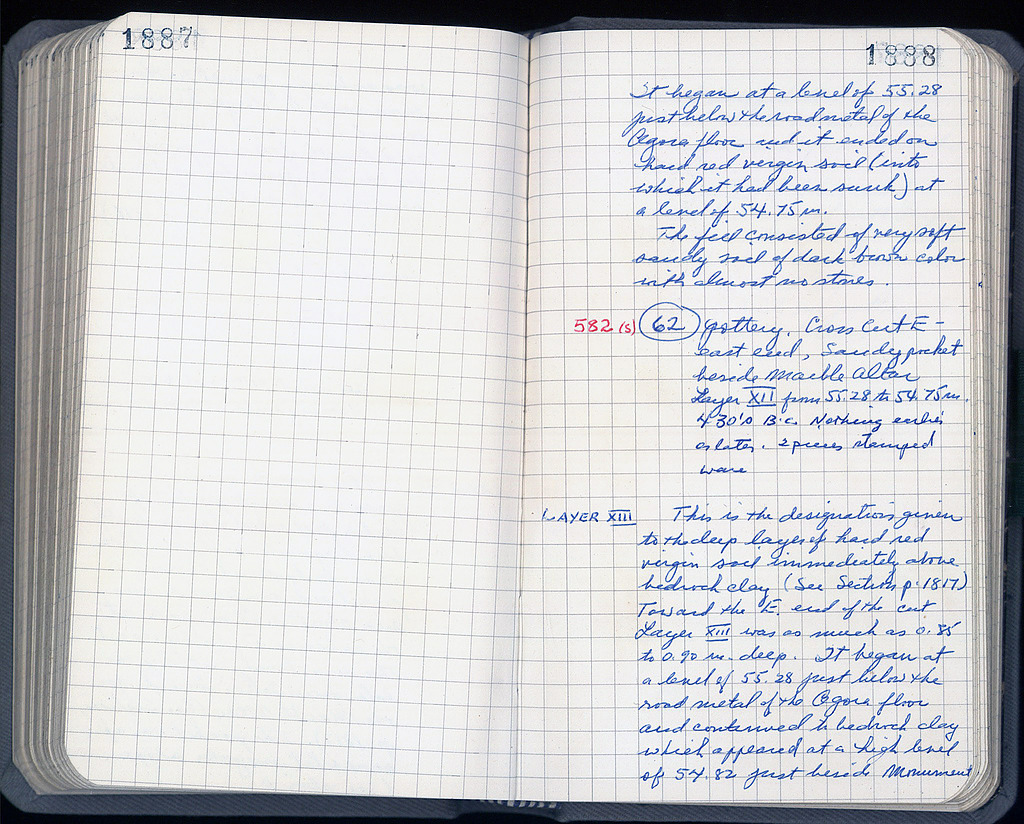 1887
1888
It began at a level of 55.28
just below the road metal of the
Agora floor and it ended on
hard red virgin soil (into
which it had been sunk) at
a level of 54.75 m.
The fill consisted of very soft
sandy soil of dark brown color
with almost no stones.
582 (s) 62 Pottery. Cross Cut E -
east end, Sandy pocket
beside Marble Altar
Layer XII from 55.28 to 54.75 m.
430's B.C. Nothing earlier
or later. 2 pieces stamped
ware
LAYER XIII This is the designation given
to the deep layer of hard red
virgin soil immediately above
bedrock clay (See Section p. 1817)
Toward the E. end of the cut
Layer XIII was as much as 0.85
to 0.90 m. deep. It began at
a level of 55.28 just below the
road metal of the Agora floor
and continued to bedrock clay
which appeared at a high level
of 54.82 just beside Monument